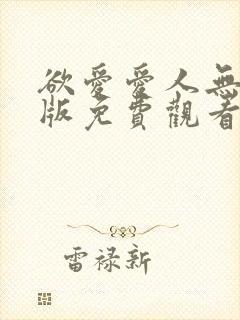 欲愛愛人無
版免費觀看
雷禄新